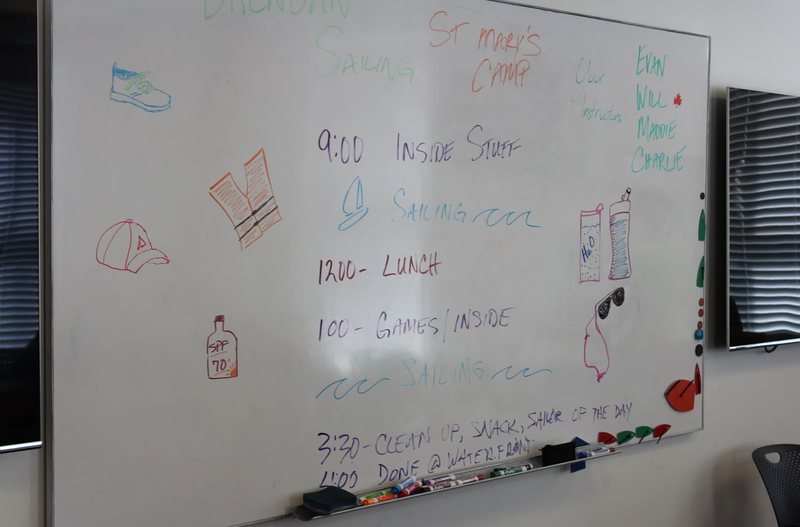 SAILING
ST MARY'S
CAMP
Your
Instructors:
EVAN
WILL
MADDIE
CHARLIE
9:00 INSIDE STUFF
SAILING
H2O
1200- LUNCH
100- GAMES/INSIDE
SPF
70
SAILING
3:30- CLEAN UP, SNACK, SAILOR OF THE DAY
4:00 DONE @ WATERFRONT